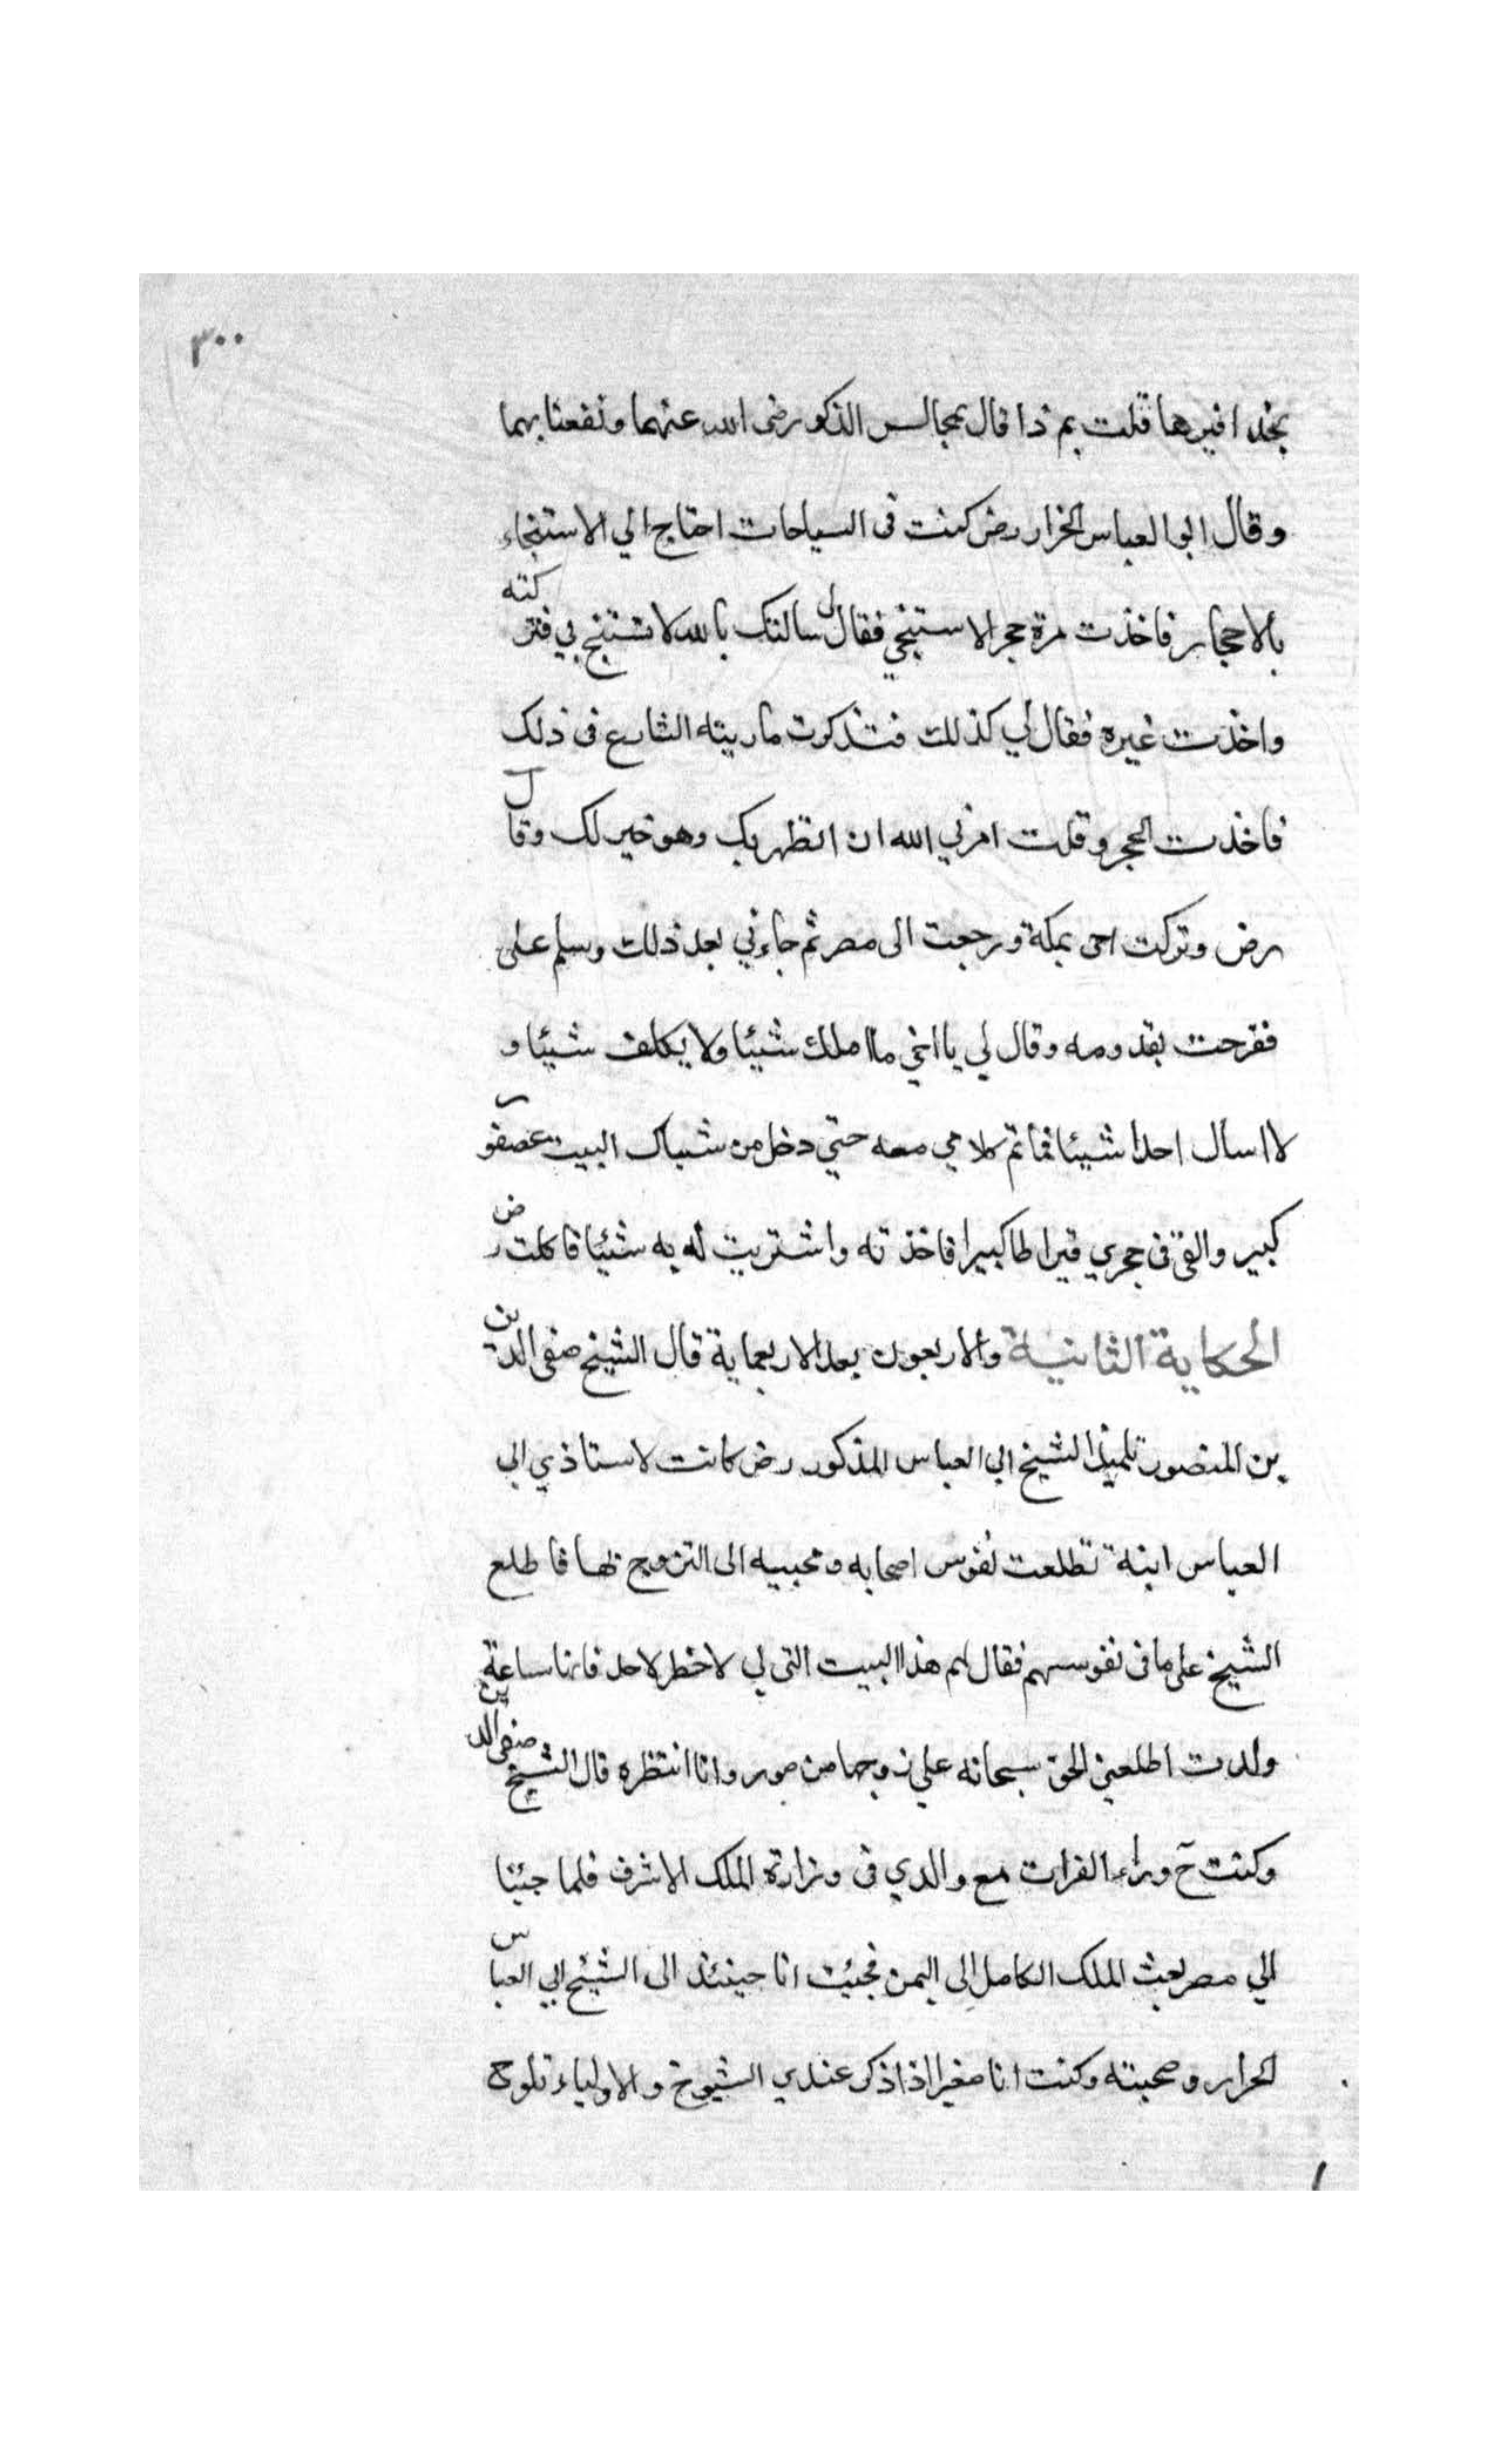 ٣٠٠
بحذافيرها قلت بم ذا قال بمجالس الذكور رضى الله عنهما ونفعنا بهما
وقال ابو العباس الخرار رض كنت فى السياحات احتاج الي الاستنجاء
بالاحجار فاخذت مرة حجرا لاستنجي فقال لي سالتك بالله لا تستنج بي فتركته
واخذت غيره فقال لي كذلك فتذكرت ما ريته الشارع فى ذلك
فاخذت الحجر وقلت امرني الله ان اتطهر بك وهو خير لك وقال
رض وتركت اخى بمكة ورجعت الى مصر ثم جاءني بعد ذلك وسلم على
ففرحت بقدومه وقال لي يا اخي ما املك شيئا ولا يكلف شيئا و
لا اسال احدا شيئا فما تم كلامي معه حتي دخل من شباك البيت عصفور
كبير والقى فى حجري قيراطا كبيرا فاخذته واشتريت له به شيئا فاكلت رض
الحكاية الثانية والاربعون بعد الاربعماية قال الشيخ صفى الدين
بن المنصور تلميذ الشيخ ابي العباس المذكور رض كانت لاستاذي ابى
العباس ابنة تطلعت نفوس اصحابه ومحبيه الى التزوج بها فاطلع
الشيخ على ما فى نفوسهم فقال لهم هذا البيت التى لي لا خطر لاحد فانها ساعة
ولدت اطلعني الحق سبحانه على زوجها من صور وانا انتظره قال الشيخ صفى الدين
وكنت ح وراء الفرات مع والدي فى وزارة الملك الاشرف فلما جئنا
الي مصر بعث الملك الكامل الى اليمن فجئت انا حينئذ الى الشيخ ابي العباس
الحرار وصحبته وكنت انا صغيرا اذا ذكر عندي الشيوخ والاولياء تلوح